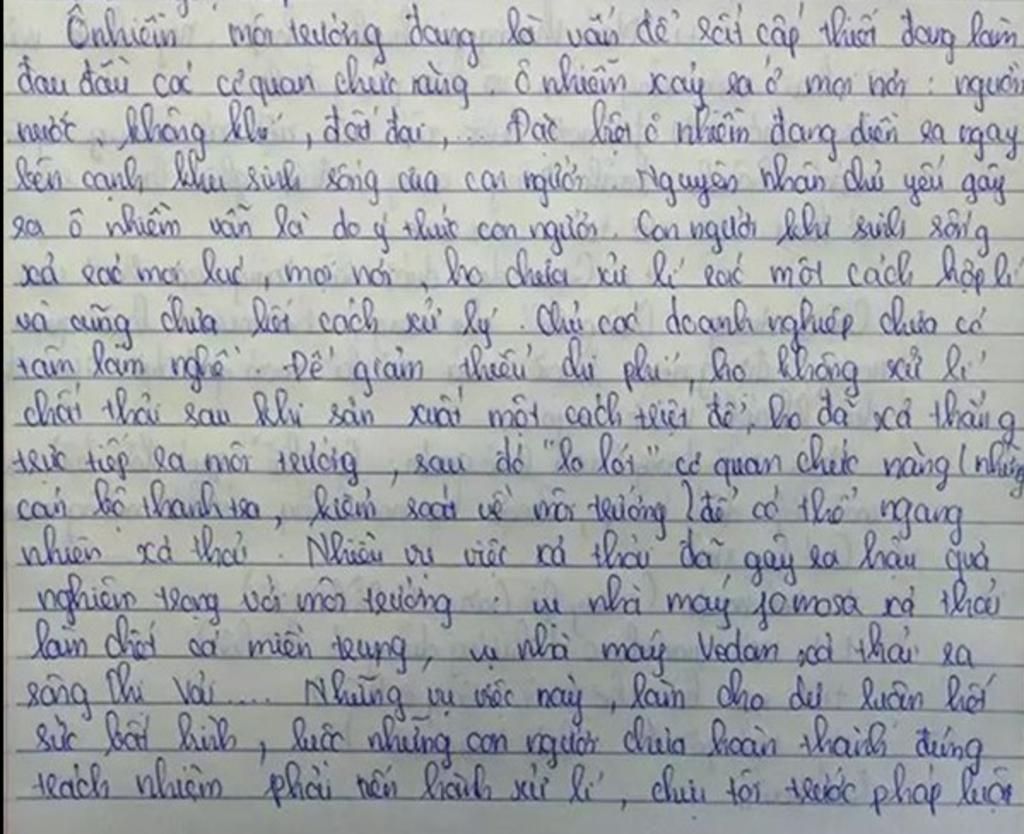 Ô nhiễm môi trường đang là vấn đề rất cấp thiết đang làm
đau đầu các cơ quan chức năng. Ô nhiễm xảy ra ở mọi nơi: nguồn
nước, không khí, đất đai,... Đặc biệt ô nhiễm đang diễn ra ngay
bên cạnh khu sinh sống của con người. Nguyên nhân chủ yếu gây
ra ô nhiễm vẫn là do ý thức con người. Con người khi sinh sống
xả rác mọi lúc, mọi nơi, họ chưa xử lí rác một cách hợp lí
và cũng chưa biết cách xử lý. Chủ các doanh nghiệp chưa có
tâm làm nghề. Để giảm thiểu chi phí, họ không xử lí
chất thải sau khi sản xuất một cách triệt để, họ đã xả thẳng
trực tiếp ra môi trường, sau đó "lo lót" cơ quan chức năng (những
cán bộ thanh tra, kiểm soát về môi trường) để có thể ngang
nhiên xả thải. Nhiều vụ việc xả thải đã gây ra hậu quả
nghiêm trọng với môi trường: vụ nhà máy fomosa xả thải
làm chết cá miền trung, vụ nhà máy Vedan xả thải ra
sông Thị Vải.... Những vụ việc này, làm cho dư luận hết
sức bất bình, buộc những con người chưa hoàn thành đúng
trách nhiệm phải tiến hành xử lí, chịu tội trước pháp luật